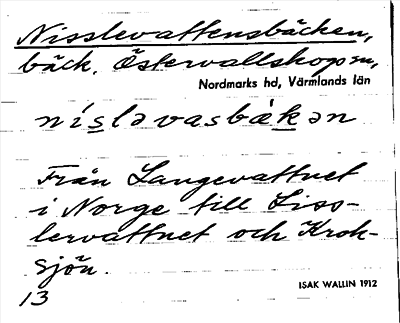 Nisslevattensbäcken,
bäck. Östervallskogs sn,
Nordmarks hd, Värmlands län
níslǝvasbäkǝn
Från Langevattnet
i Norge till Liss-
lervattnet och Krok-
sjön.
13
ISAK WALLIN 1912